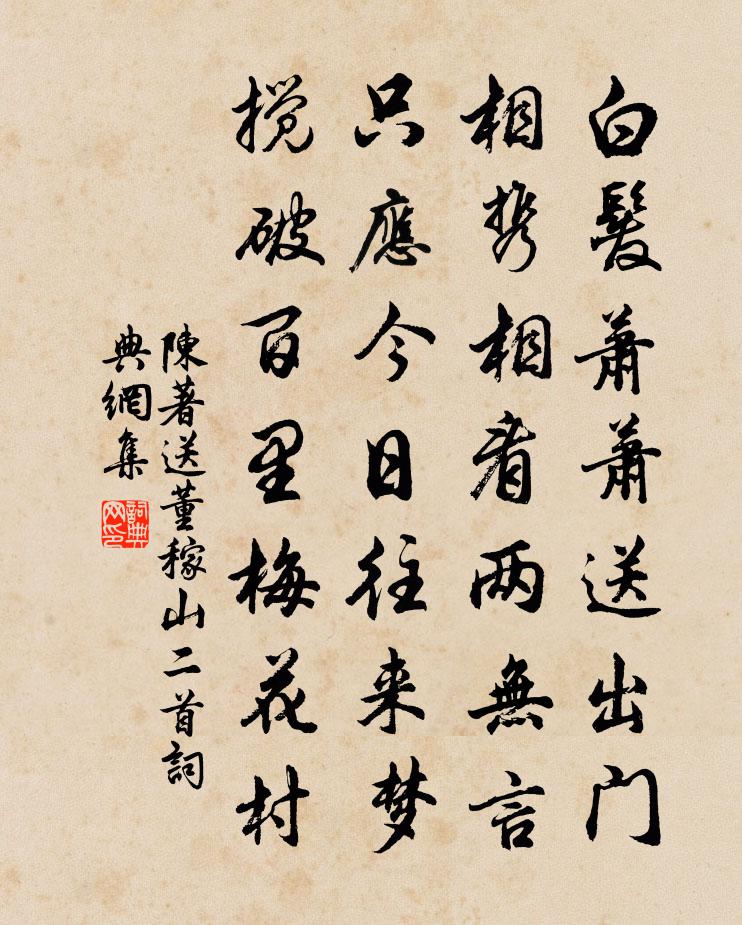 白髮蕭蕭送出门
相携相看两無言
只應今日往来梦
搅破百里梅花村
陳著送董稼山二首詞
典網集
詞典
网印